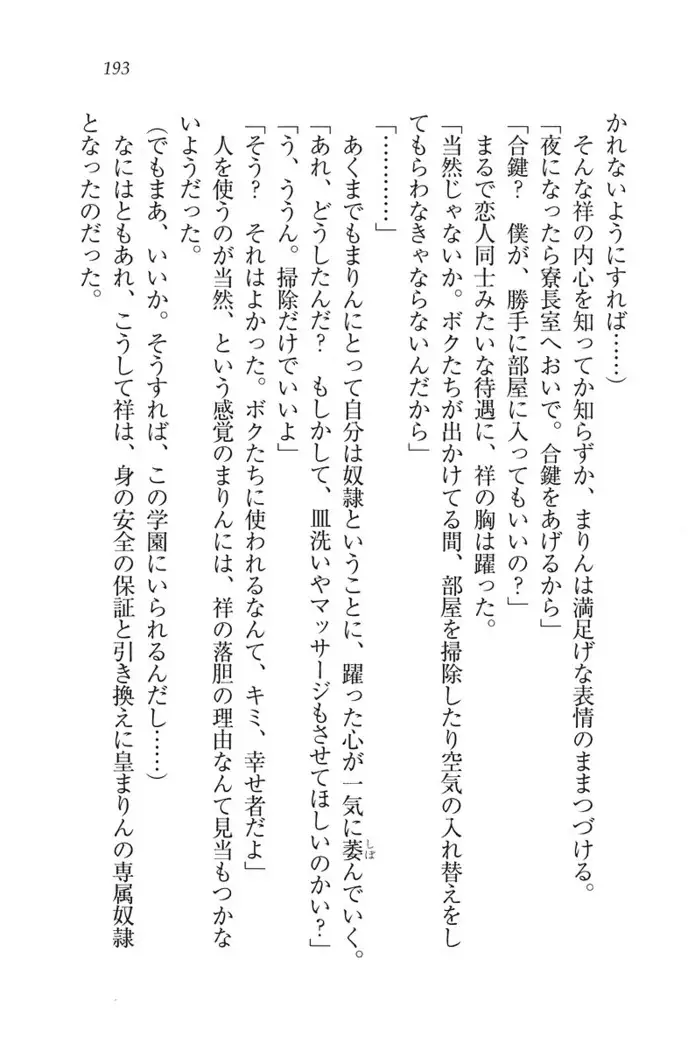 193
かれないようにすれば……)
　そんな祥の内心を知ってか知らずか、まりんは満足げな表情のままつづける。
「夜になったら寮長室へおいで。合鍵をあげるから」
「合鍵?　僕が、勝手に部屋に入ってもいいの?」
　まるで恋人同士みたいな待遇に、祥の胸は躍った。
「当然じゃないか。ボクたちが出かけてる間、部屋を掃除したり空気の入れ替えをし
てもらわなきゃならないんだから」
「…………」
　あくまでもまりんにとって自分は奴隷ということに、躍った心が一気に萎んでいく。
しぼ
「あれ、どうしたんだ?　もしかして、皿洗いやマッサージもさせてほしいのかい?」
「う、ううん。掃除だけでいいよ」
「そう?　それはよかった。ボクたちに使われるなんて、キミ、幸せ者だよ」
　人を使うのが当然、という感覚のまりんには、祥の落胆の理由なんて見当もつかな
いようだった。
(でもまあ、いいか。そうすれば、この学園にいられるんだし……)
　なにはともあれ、こうして祥は、身の安全の保証と引き換えに皇まりんの専属奴隷
となったのだった。